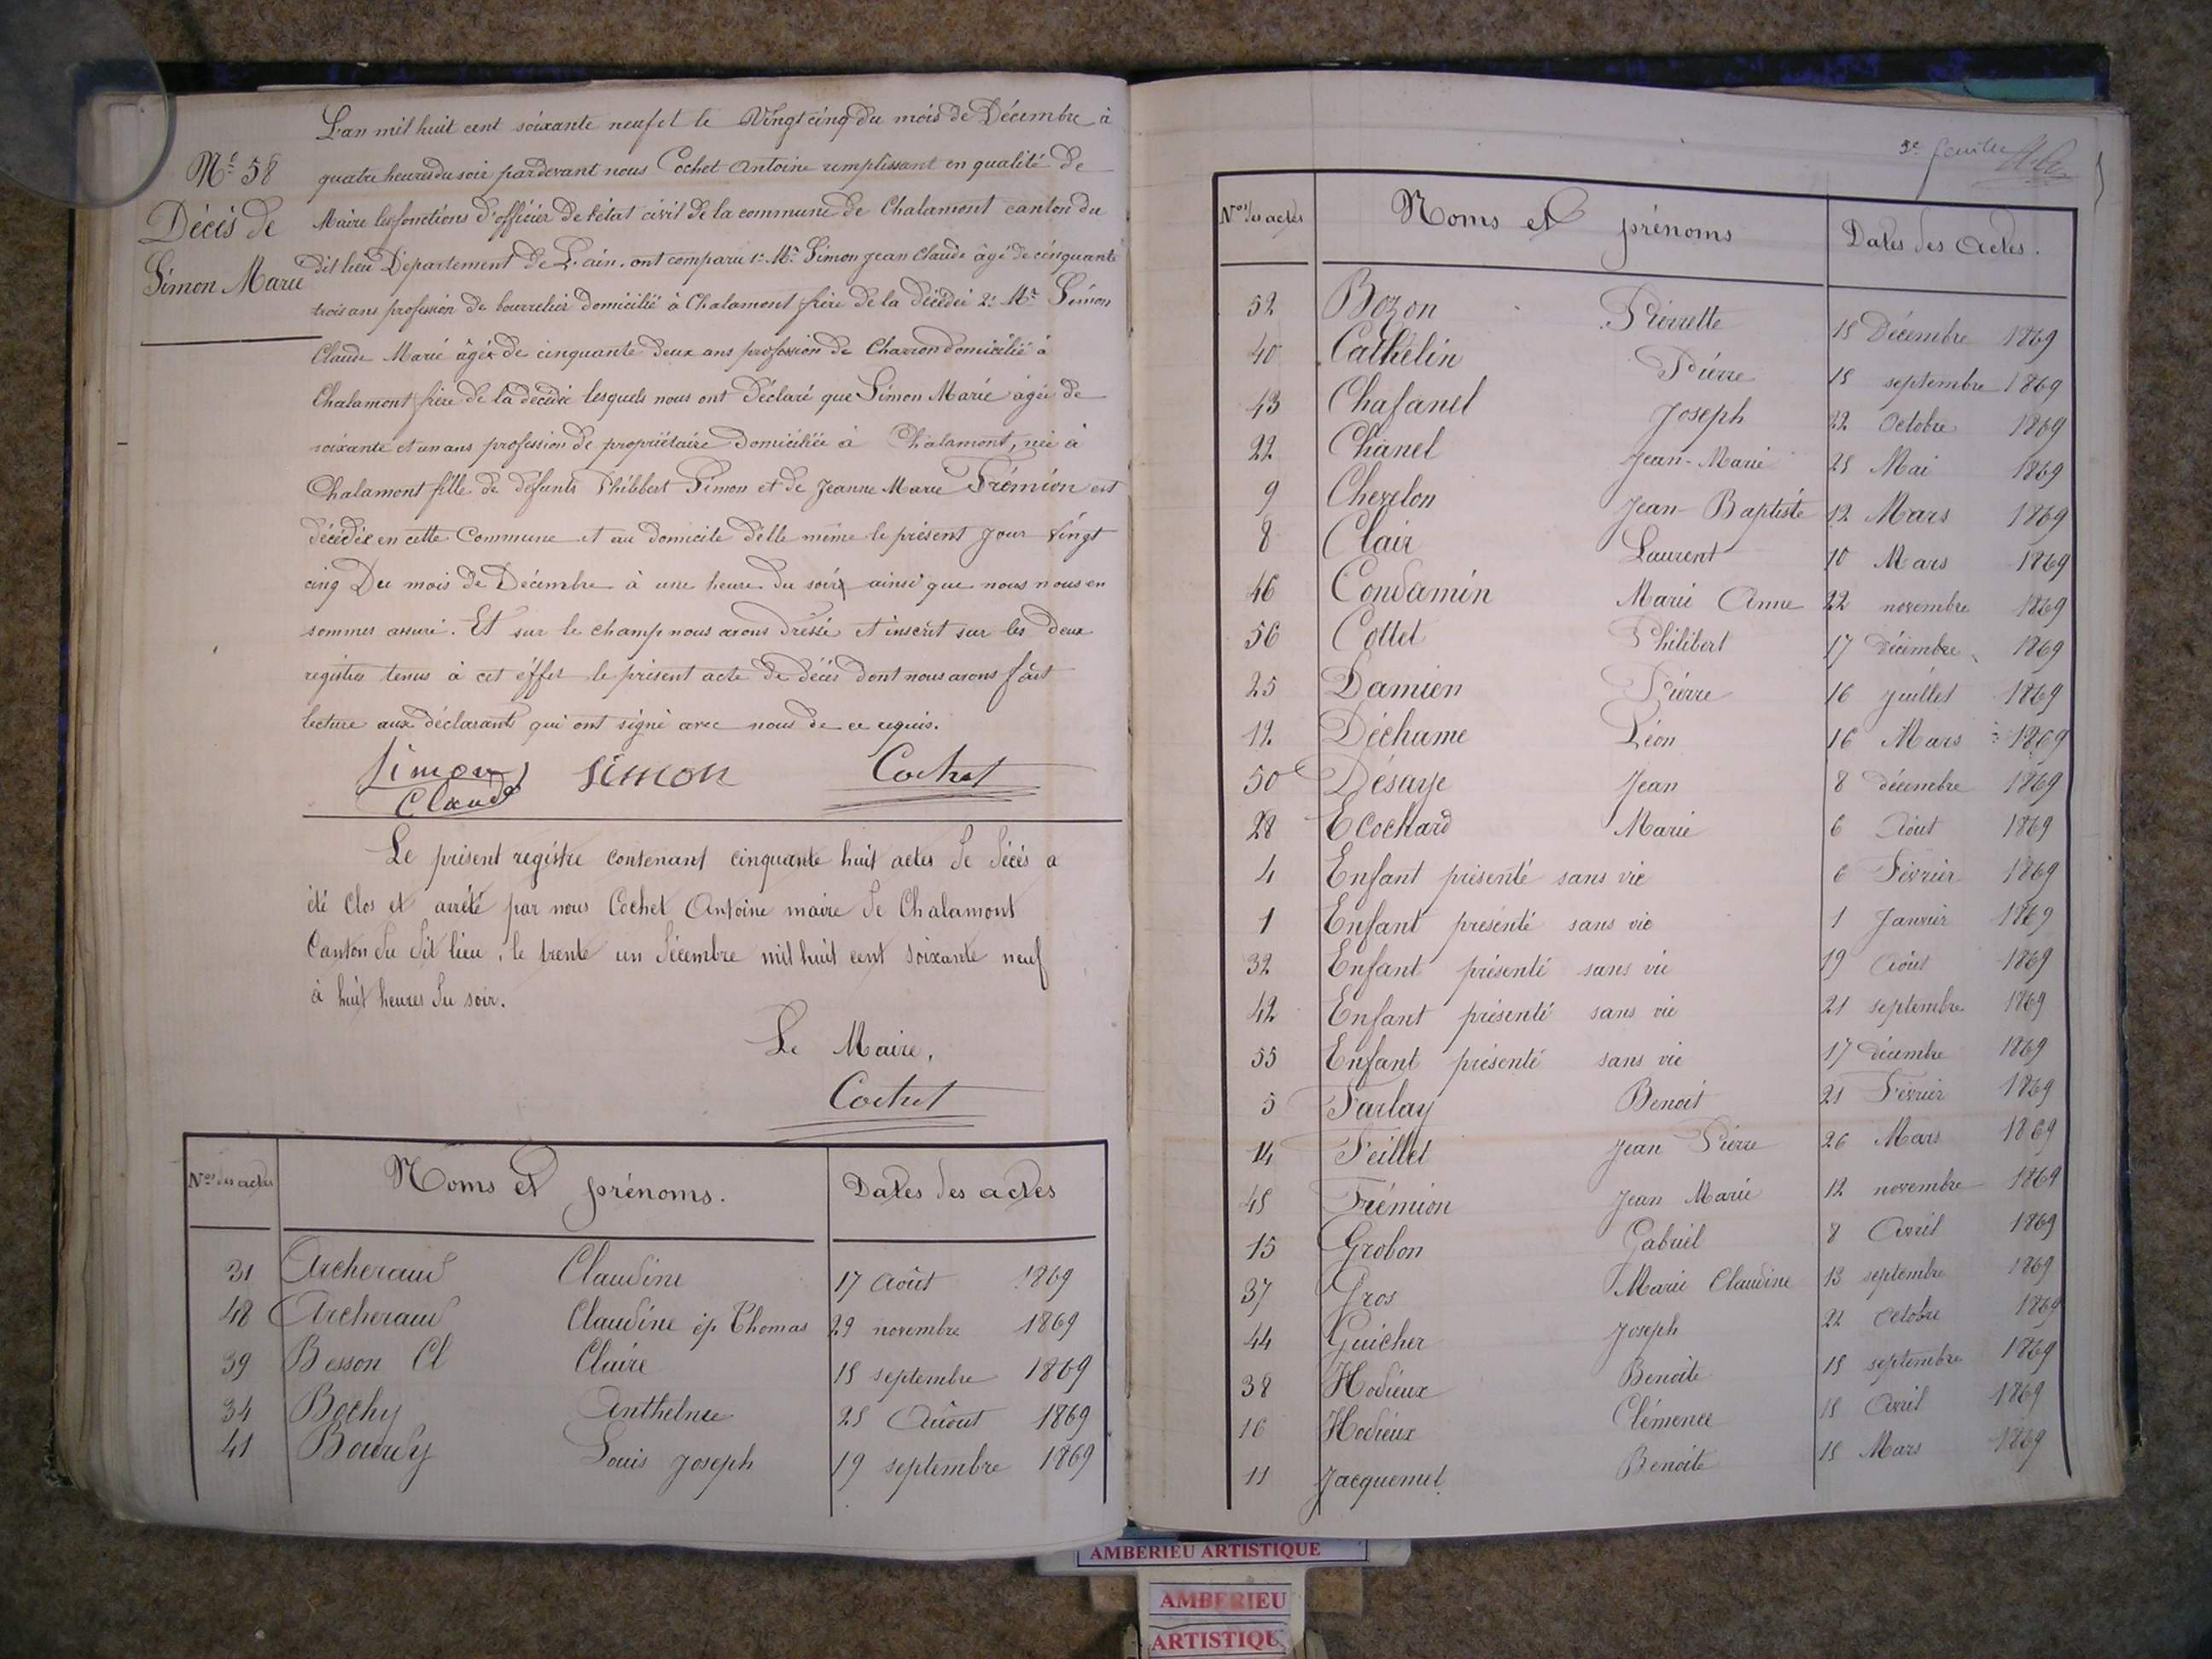 L'an mil huit cent soixante neuf et le Vingt cinq du mois de Décembre à
quatre heures du soir pardevant nous Cochet Antoine remplissant en qualité de
Maire les fonctions d'officier de l'état civil de la commune de Chalamont canton du
dit lieu Département de L'ain. ont comparu 1º Mr Simon Jean Claude âgé de cinquante
trois ans profession de bourrelier domicilié à Chalamont frère de la décédée 2º Mr Simon
Claude Marie âgé de cinquante deux ans profession de Charron domicilié à
Chalamont frère de la décédée lesquels nous ont déclaré que Simon Marie âgée de
soixante et un ans profession de propriétaire domiciliée à Chalamont, née à
Chalamont fille de défunts Philibert Simon et de Jeanne Marie Frémion est
décédée en cette Commune et au domicile d'elle même le présent jour vingt
cinq Du mois de Décembre à une heure du soir ainsi que nous nous en
sommes assuré. Et sur le champ nous avons dressé et inscrit sur les deux
registres tenus à cet éffet le présent acte de décès dont nous avons fait
lecture aux déclarants qui ont signé avec nous de ce requis.
Nº 58
Décès de
Simon Marie
Simon Simon Cochet
Claude
Le présent registre contenant cinquante huit actes de décès a
été clos et arrêté par nous Cochet Antoine maire de Chalamont
Canton du dit lieu, le trente un décembre mil huit cent soixante neuf
à huit heures du soir.
Le Maire,
Cochet
Nos des actes Noms et prénoms. Dates des actes
31 Archeraud Claudine 17 Août 1869
48 Archeraud Claudine ép Thomas 29 novembre 1869
39 Besson Cl Claire 15 septembre 1869
34 Bochy Anthelme 25 Août 1869
41 Bourdy Louis Joseph 19 septembre 1869
3e feuille
Nos des actes Noms et prénoms Dates des actes.
52 Bozon Pierrette 15 Décembre 1869
40 Cathelin Pierre 15 septembre 1869
43 Chafanel Joseph 22 Octobre 1869
22 Chanel Jean-Marie 25 Mai 1869
9 Chevelon Jean-Baptiste 12 Mars 1869
8 Clair Laurent 10 Mars 1869
46 Condamin Marie Anne 22 novembre 1869
56 Cottet Philibert 17 décembre 1869
25 Damien Pierre 16 juillet 1869
12 Déchame Léon 16 Mars 1869
50 Désaye Jean 8 décembre 1869
28 Ecochard Marie 6 Août 1869
4 Enfant présenté sans vie 6 Février 1869
1 Enfant présenté sans vie 1 Janvier 1869
32 Enfant présenté sans vie 19 août 1869
42 Enfant présenté sans vie 21 septembre 1869
55 Enfant présenté sans vie 17 décembre 1869
5 Farlay Benoit 21 Février 1869
14 Feillet Jean Pierre 26 Mars 1869
45 Frémion Jean Marie 12 novembre 1869
15 Grobon Gabriel 8 Avril 1869
37 Gros Marie Claudine 13 septembre 1869
44 Guicher Joseph 22 Octobre 1869
38 Hodieux Benoite 15 septembre 1869
16 Hodieux Clémence 15 Avril 1869
11 Jacquemet Benoite 15 Mars 1869
AMBERIEU ARTISTIQUE
AMBERIEU
ARTISTIQU